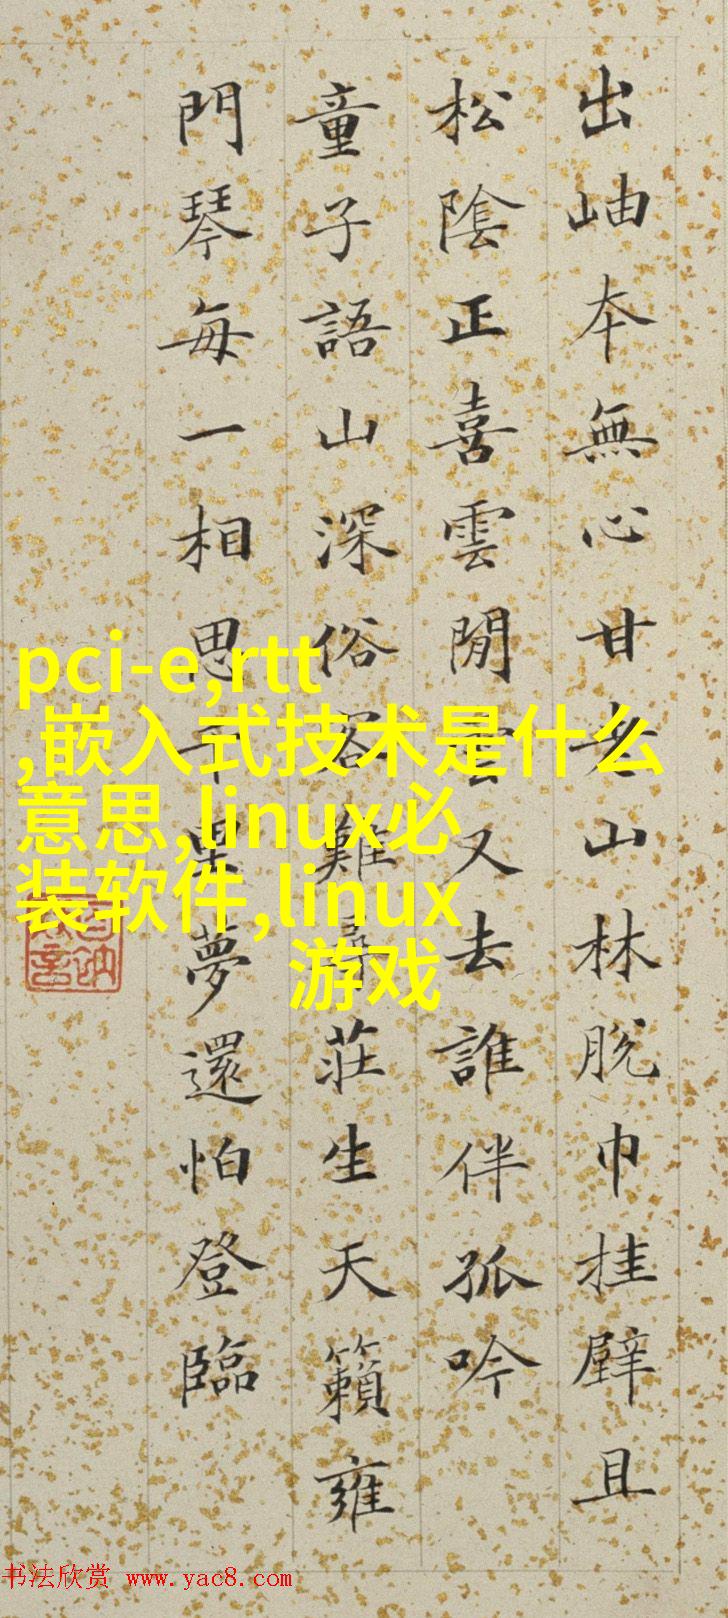 出岫本無心甘老山林脫巾挂壁且
松陰正喜雲閒雲又去誰伴孤吟
童子語山深俗客難尋莊生天籟雍
門琴每一相思千里夢還怕登臨
pci-e,rtt
,嵌入式技术是什么
意思,linux必
装软件,linux
游戏
书法欣赏 www.yac8.com